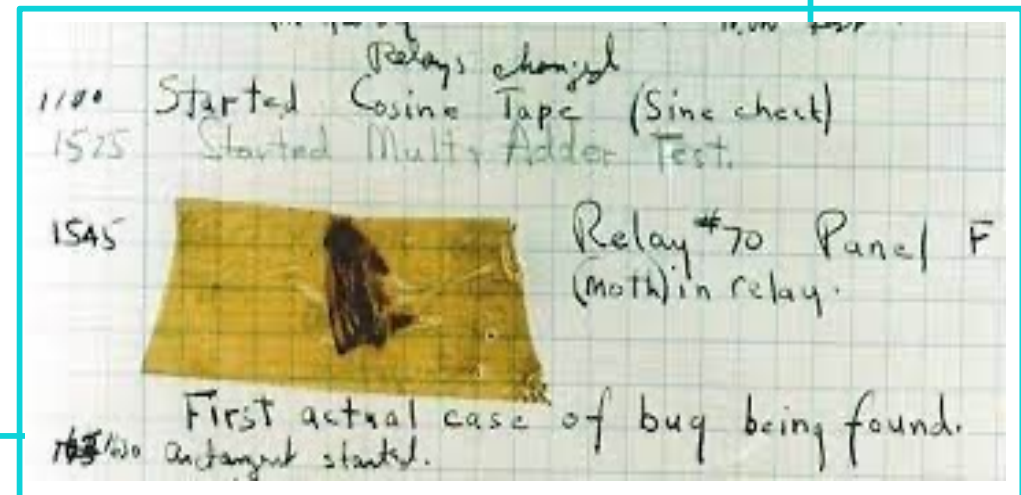 Relays changed
1100 Started Cosine Tape (Sine check)
1525 Started Mult+Adder Test.
1545 Relay #70 Panel F
(moth) in relay.
First actual case of bug being found.
1630 arctangent started.